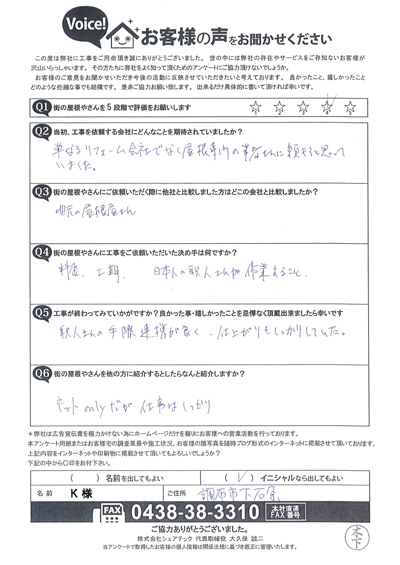 Voice!
お客様の声をお聞かせください
この度は弊社に工事をご用命頂き誠にありがとうございました。世の中には弊社の存在やサービスをご存知ないお客様が
沢山いらっしゃいます。その方たちに弊社をよく知って頂くためのアンケートにご協力頂けないでしょうか。
お客様のご意見をお聞かせいただき今後の活動に反映させていただきたいと考えております。良かったこと、嬉しかったこと
どのような些細な事でも結構です。是非ご協力お願い致します。出来るだけ具体的に書いて頂ければ幸いです。
Q1 街の屋根やさんを5段階で評価をお願いします
Q2 当初、工事を依頼する会社にどんなことを期待されていましたか?
単なるリフォーム会社でなく屋根専門の業者さんに頼もうと思って
いました。
Q3 街の屋根やさんにご依頼いただく際に他社と比較しました方はどこの会社と比較しましたか?
地元の屋根屋さん
Q4 街の屋根やさんに工事をご依頼いただいた決め手は何ですか?
料金、工期、日本人の職人さんが作業すること、
Q5 工事が終わってみていかがですか?良かった事・嬉しかったことを忌憚なく頂戴出来ましたら幸いです
職人さんの手際連携が良く、仕上がりもしっかりしていた。
Q6 街の屋根やさんを他の方に紹介するとしたらなんと紹介しますか?
ネットonlyだが仕事はしっかり
*弊社は広告宣伝費を極力かけない為にホームページだけを頼りにお客様への営業活動を行っております。
本アンケート用紙またはお客様宅の調査風景や施工状況、お客様の顔写真を随時ブログ形式のインターネットに掲載させて頂いております。
上記内容をインターネットや印刷物に掲載させて頂いてもよろしいでしょうか?
下記の中から〇印をお付下さい。
( )名前を出してもよい (✓)イニシャルなら出してもよい
名前 K様 ご住所 調布市下石原
FAX 0438-38-3310 本社直通FAX番号
ご協力ありがとうございました。
株式会社シェアテック 代表取締役 大久保 誠二
当アンケートで取得したお客様の個人情報は関係法規に基づき厳正に管理いたします。
木下